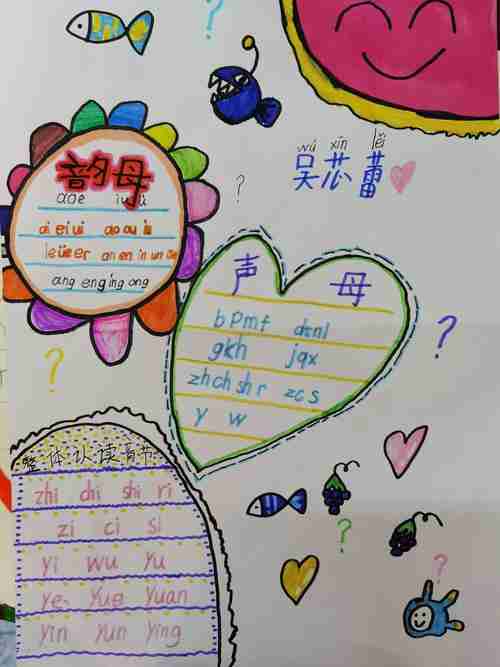 wú xīn lěi
吴芯蕾
韵母
a o e i u ü
ai ei ui ao ou iu
ie üe er an en in un ün
ang eng ing ong
声母
b p m f d t n l
g k h j q x
zh ch sh r z c s
y w
整体认读音节
zhi chi shi ri
zi ci si
yi wu yu
ye yue yuan
yin yun ying
?
?
?
?
?
?